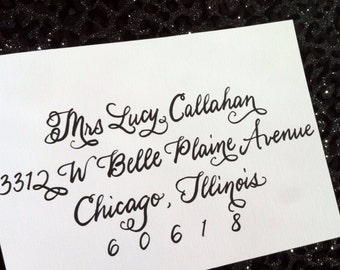 Mrs Lucy Callahan
3312 W Belle Plaine Avenue
Chicago, Illinois
60618